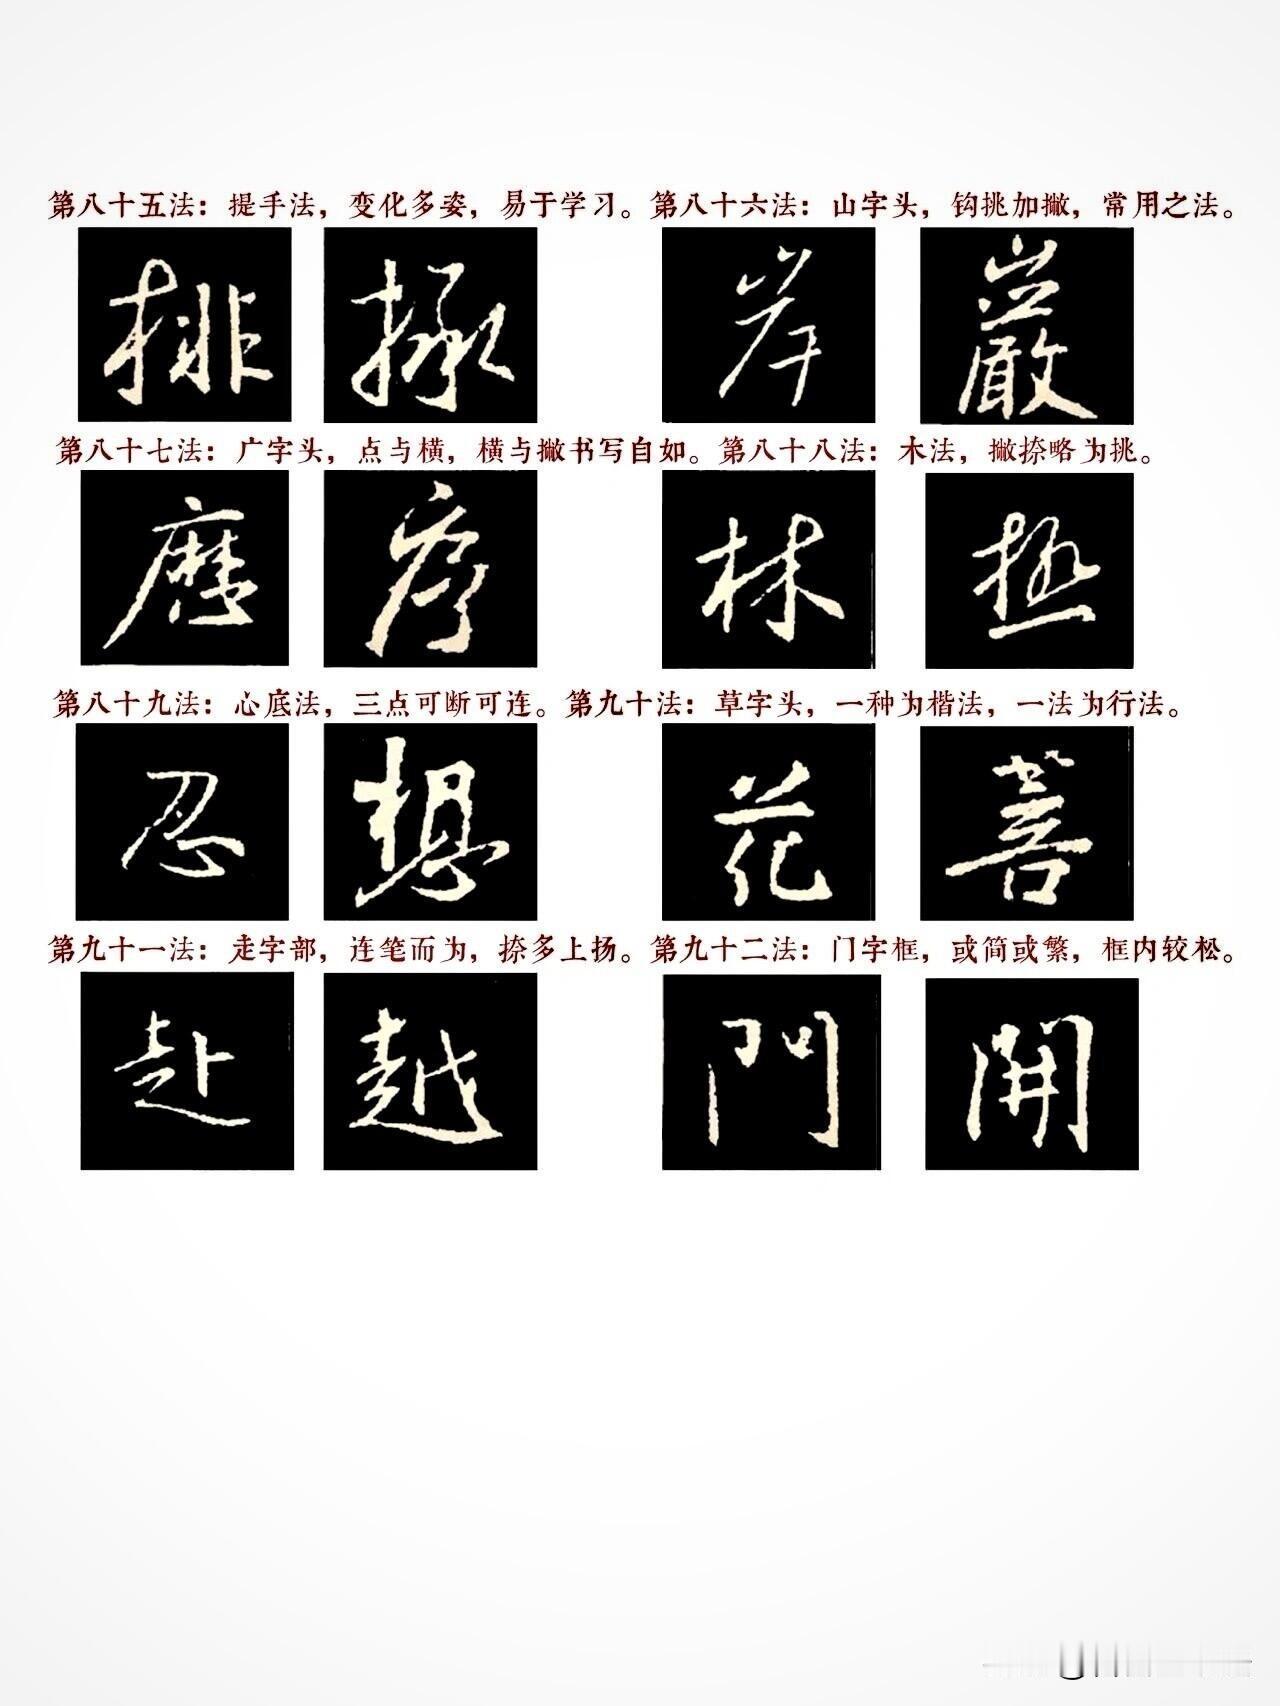 第八十五法：提手法，变化多姿，易于学习。第八十六法：山字头，钩挑加撇，常用之法。
排 拯 岸 巖
第八十七法：广字头，点与横，横与撇书写自如。第八十八法：木法，撇捺略为挑。
磨 序 林 极
第八十九法：心底法，三点可断可连。第九十法：草字头，一种为楷法，一法为行法。
忍 想 花 菩
第九十一法：走字部，连笔而为，捺多上扬。第九十二法：门字框，或简或繁，框内较松。
赴 越 門 開